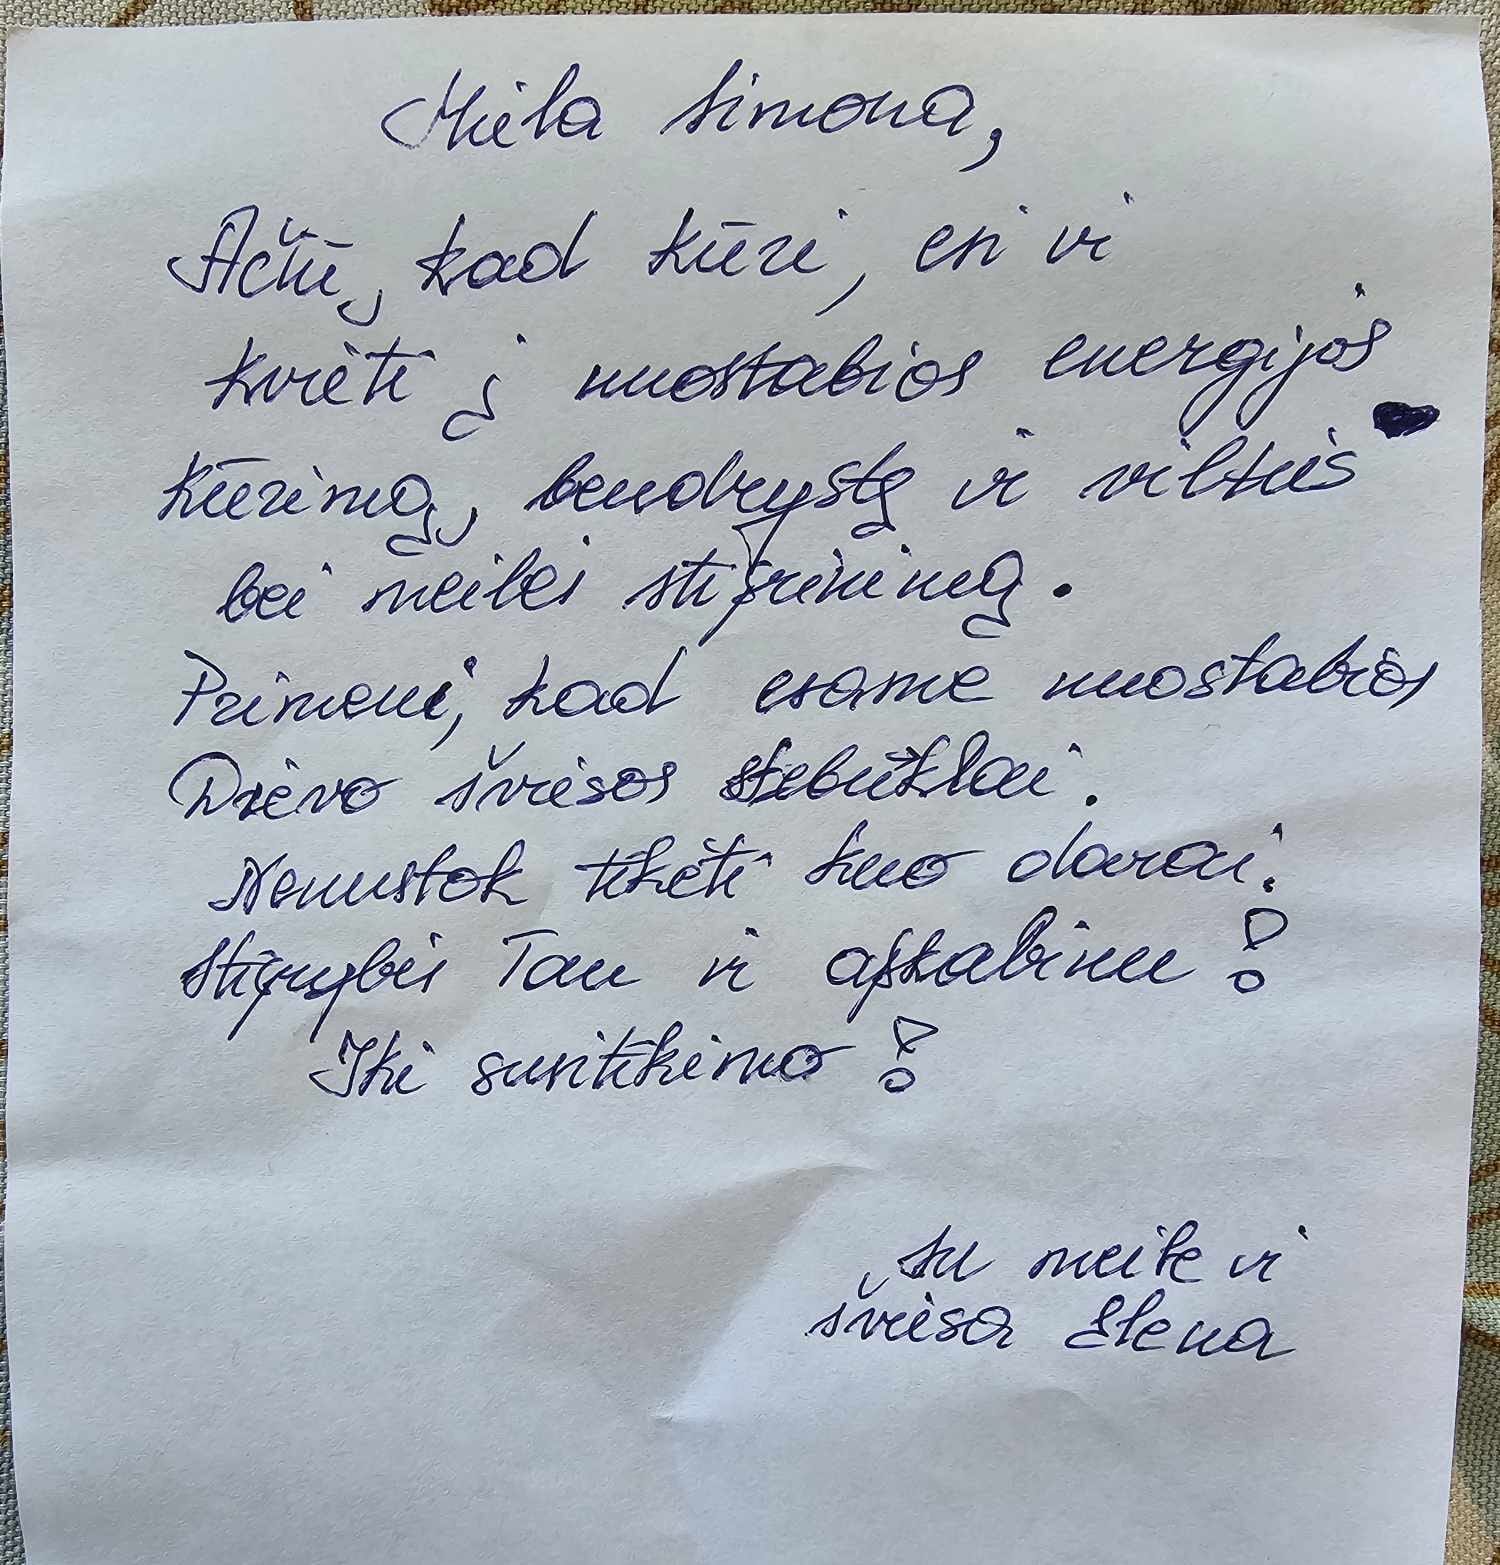 Miela Simona,
Ačiū, kad kūri, esi ir
kvieti į nuostabios energijos
kūrimą, bendrystę ir vilties
bei meilei stiprinimą.
Primeni, kad esame nuostabios
Dievo šviesos stebūklai.
Nenustok tikėti kuo darai.
Stiprybės Tau ir apkabinu!
Iki susitikimo!
Su meile ir
šviesa Elena